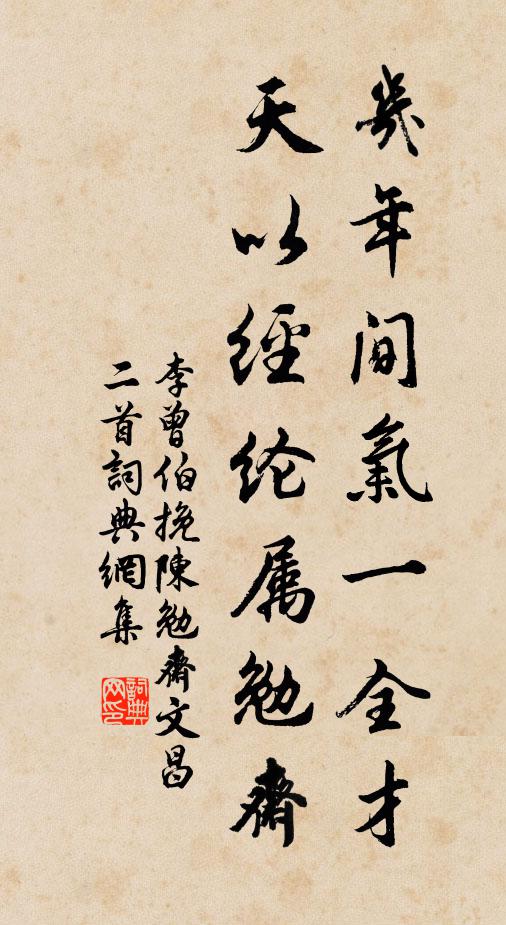 幾年間氣一全才
天以經纶属勉齋
李曾伯挽陳勉齋文昌
二首詞典網集
詞典网印